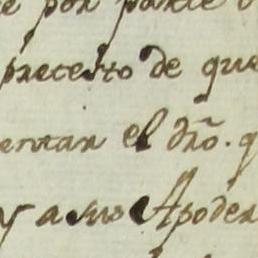 por parte
pretesto de que
entar el dr̃o. q
y a sus Apoder